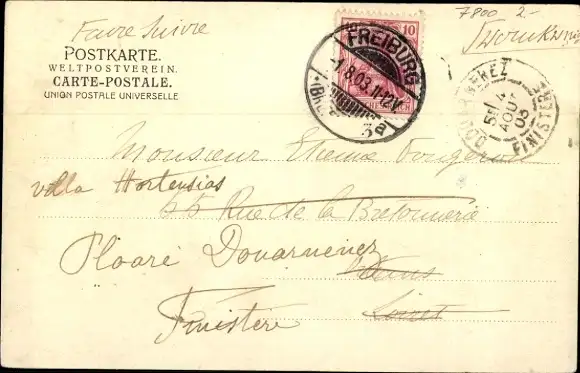 Faire Suivre
7800 2-
POSTKARTE.
WELTPOSTVEREIN.
CARTE-POSTALE.
UNION POSTALE UNIVERSELLE
10
FREIBURG
1.8.03.11-12V
3a
DOUARNENEZ
4
AOUT
03
FINISTERE
Monsieur Etienne Fougeron
villa Hortensias
55 Rue de la Bretonnerie
Ploaré Douarnenez
Finistère
Loiret